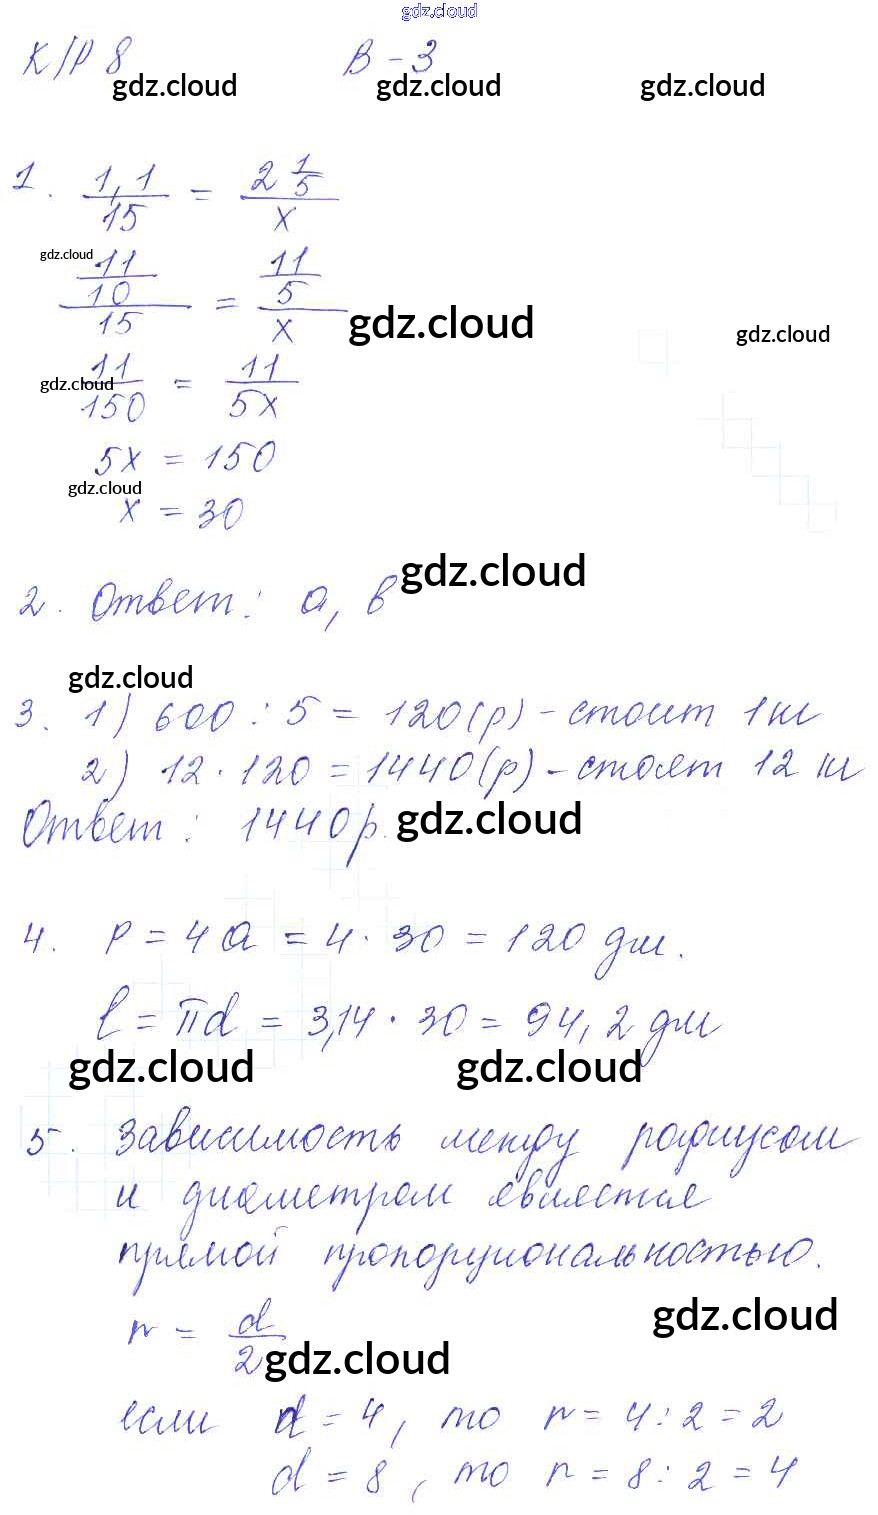 gdz.cloud
К/Р 8 В - 3
gdz.cloud gdz.cloud gdz.cloud
1. 1,1/15 = 2 1/5 / x
gdz.cloud
11/10 / 15 = 11/5 / x
gdz.cloud gdz.cloud
11/150 = 11/5x
gdz.cloud
5x = 150
gdz.cloud
x = 30
gdz.cloud
2. Ответ: а, в
gdz.cloud
3. 1) 600 : 5 = 120(р) - стоит 1 кг
2) 12 · 120 = 1440(р) - стоят 12 кг
Ответ: 1440р.
gdz.cloud
4. P = 4a = 4 · 30 = 120 дм.
l = πd = 3,14 · 30 = 94,2 дм
gdz.cloud gdz.cloud
5. Зависимость между радиусом
и диаметром является
прямой пропорциональностью.
gdz.cloud
r = d/2
gdz.cloud
если d = 4, то r = 4 : 2 = 2
d = 8, то r = 8 : 2 = 4